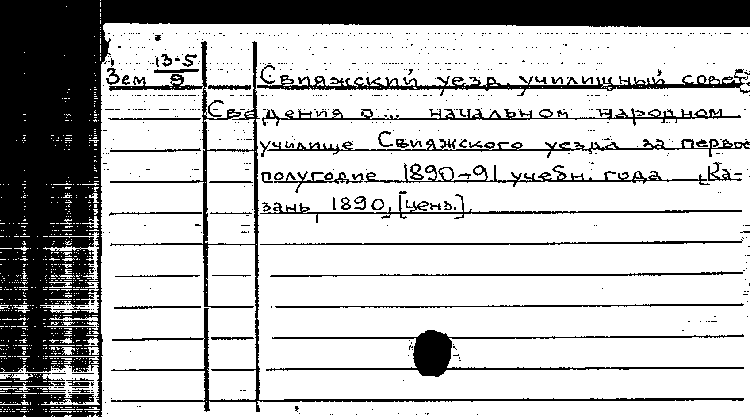 Зем 13-5/9 Свияжский уезд. училищный совет.
Сведения о... начальном народном
училище Свияжского уезда за первое
полугодие 1890-91 учебн. года [Ка-
зань, 1890, [ценз.].